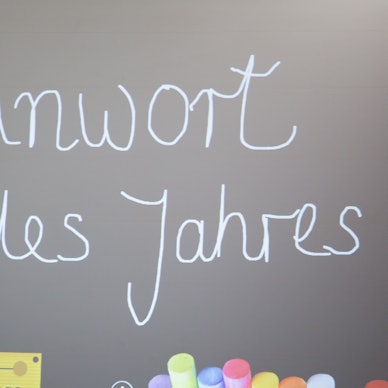 unwort
des Jahres